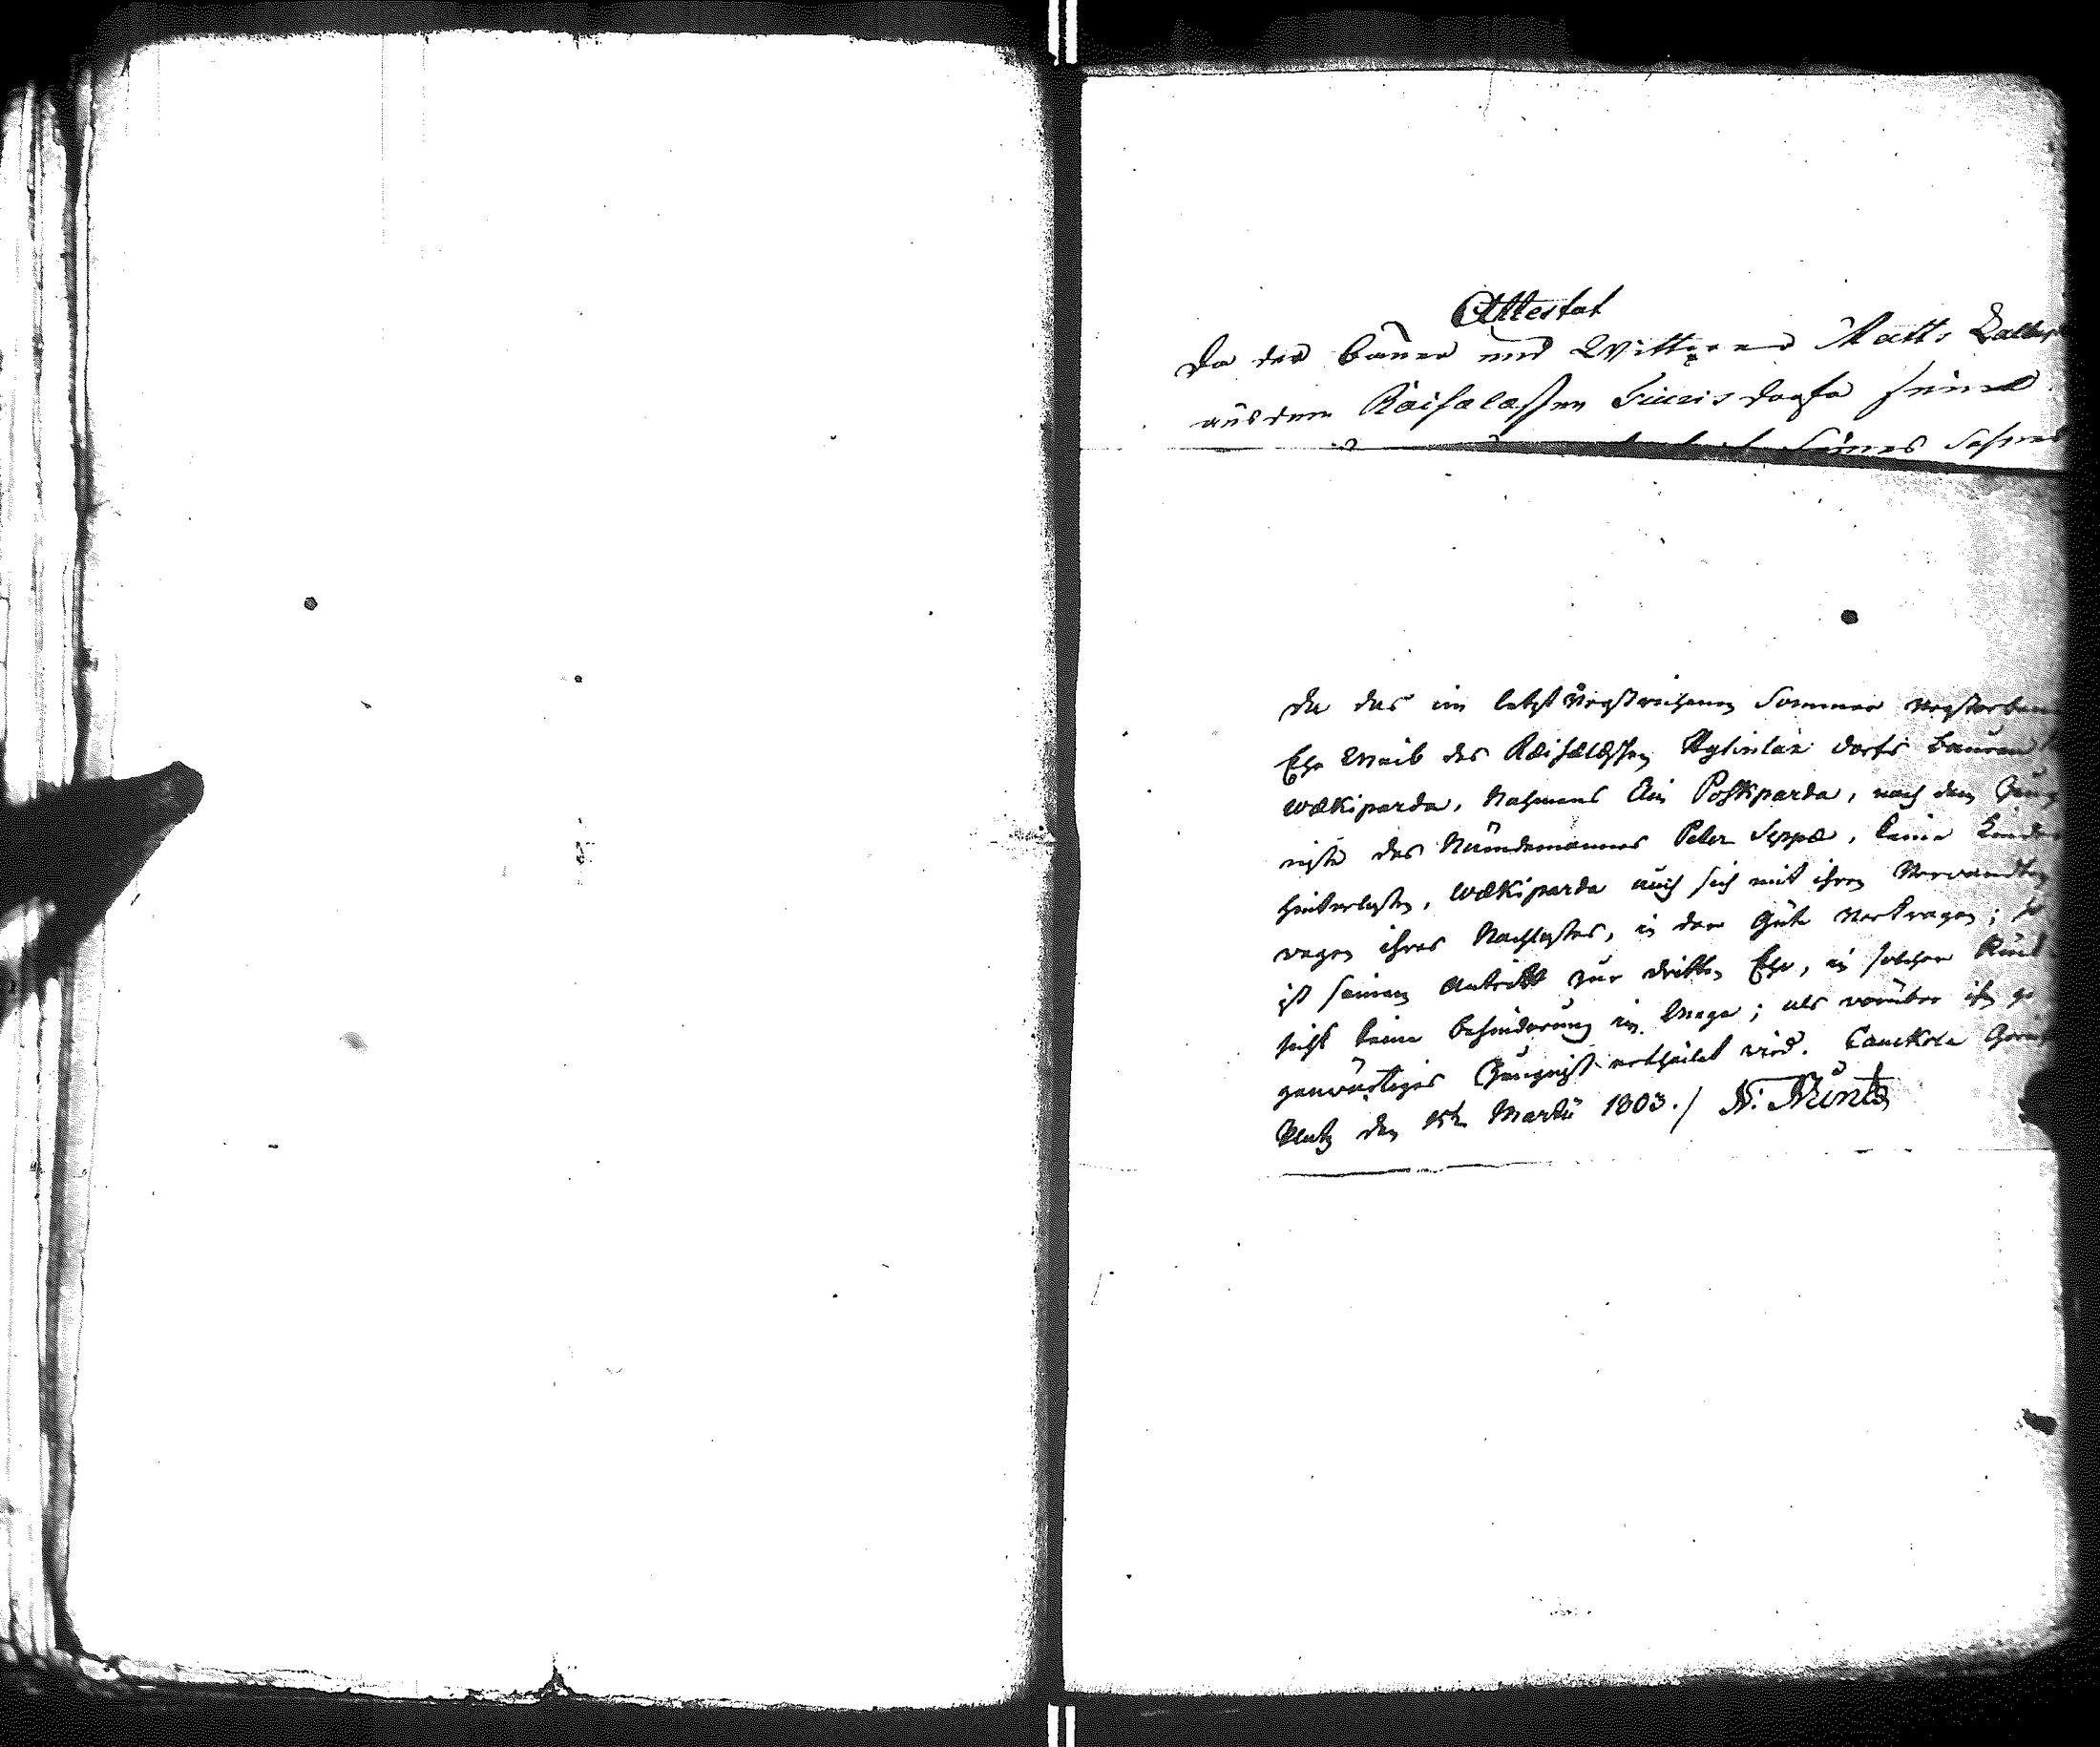 Attestat
Da der Bauer und Wittwer Matts
aus dem Räisäläschen Siuris dorfe seine
Seines Sohnes
Da das im letzt verstrichenen Sommer verstorbene
Ehe Weib des Räisäläschen Dorfs Bauren
Wækiparda, Nahmens Ain Poskparda, nach dem Zeug
niße des Nämdemannes Peter Seppæ, keine Kinder
hinterlaßen, Wækiparda auch sich mit ihren Verwandten
wegen ihres Nachlaßes, in der Güte vertragen; so
ist seinem Antritt zur dritten Ehe, in solcher Rück
sicht keine Behinderung im Wege; als worüber ihm ge
genwärtiges Zeugniß ertheilet wird. Cauckola Gerichts
Platz den Martii 1803./ N: